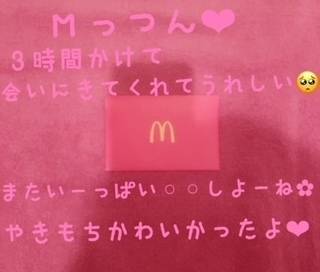 Mっつん❤
3時間かけて
会いにきてくれてうれしい🥺
M
またいーっぱい○○しよーね✿
やきもちかわいかったよ❤